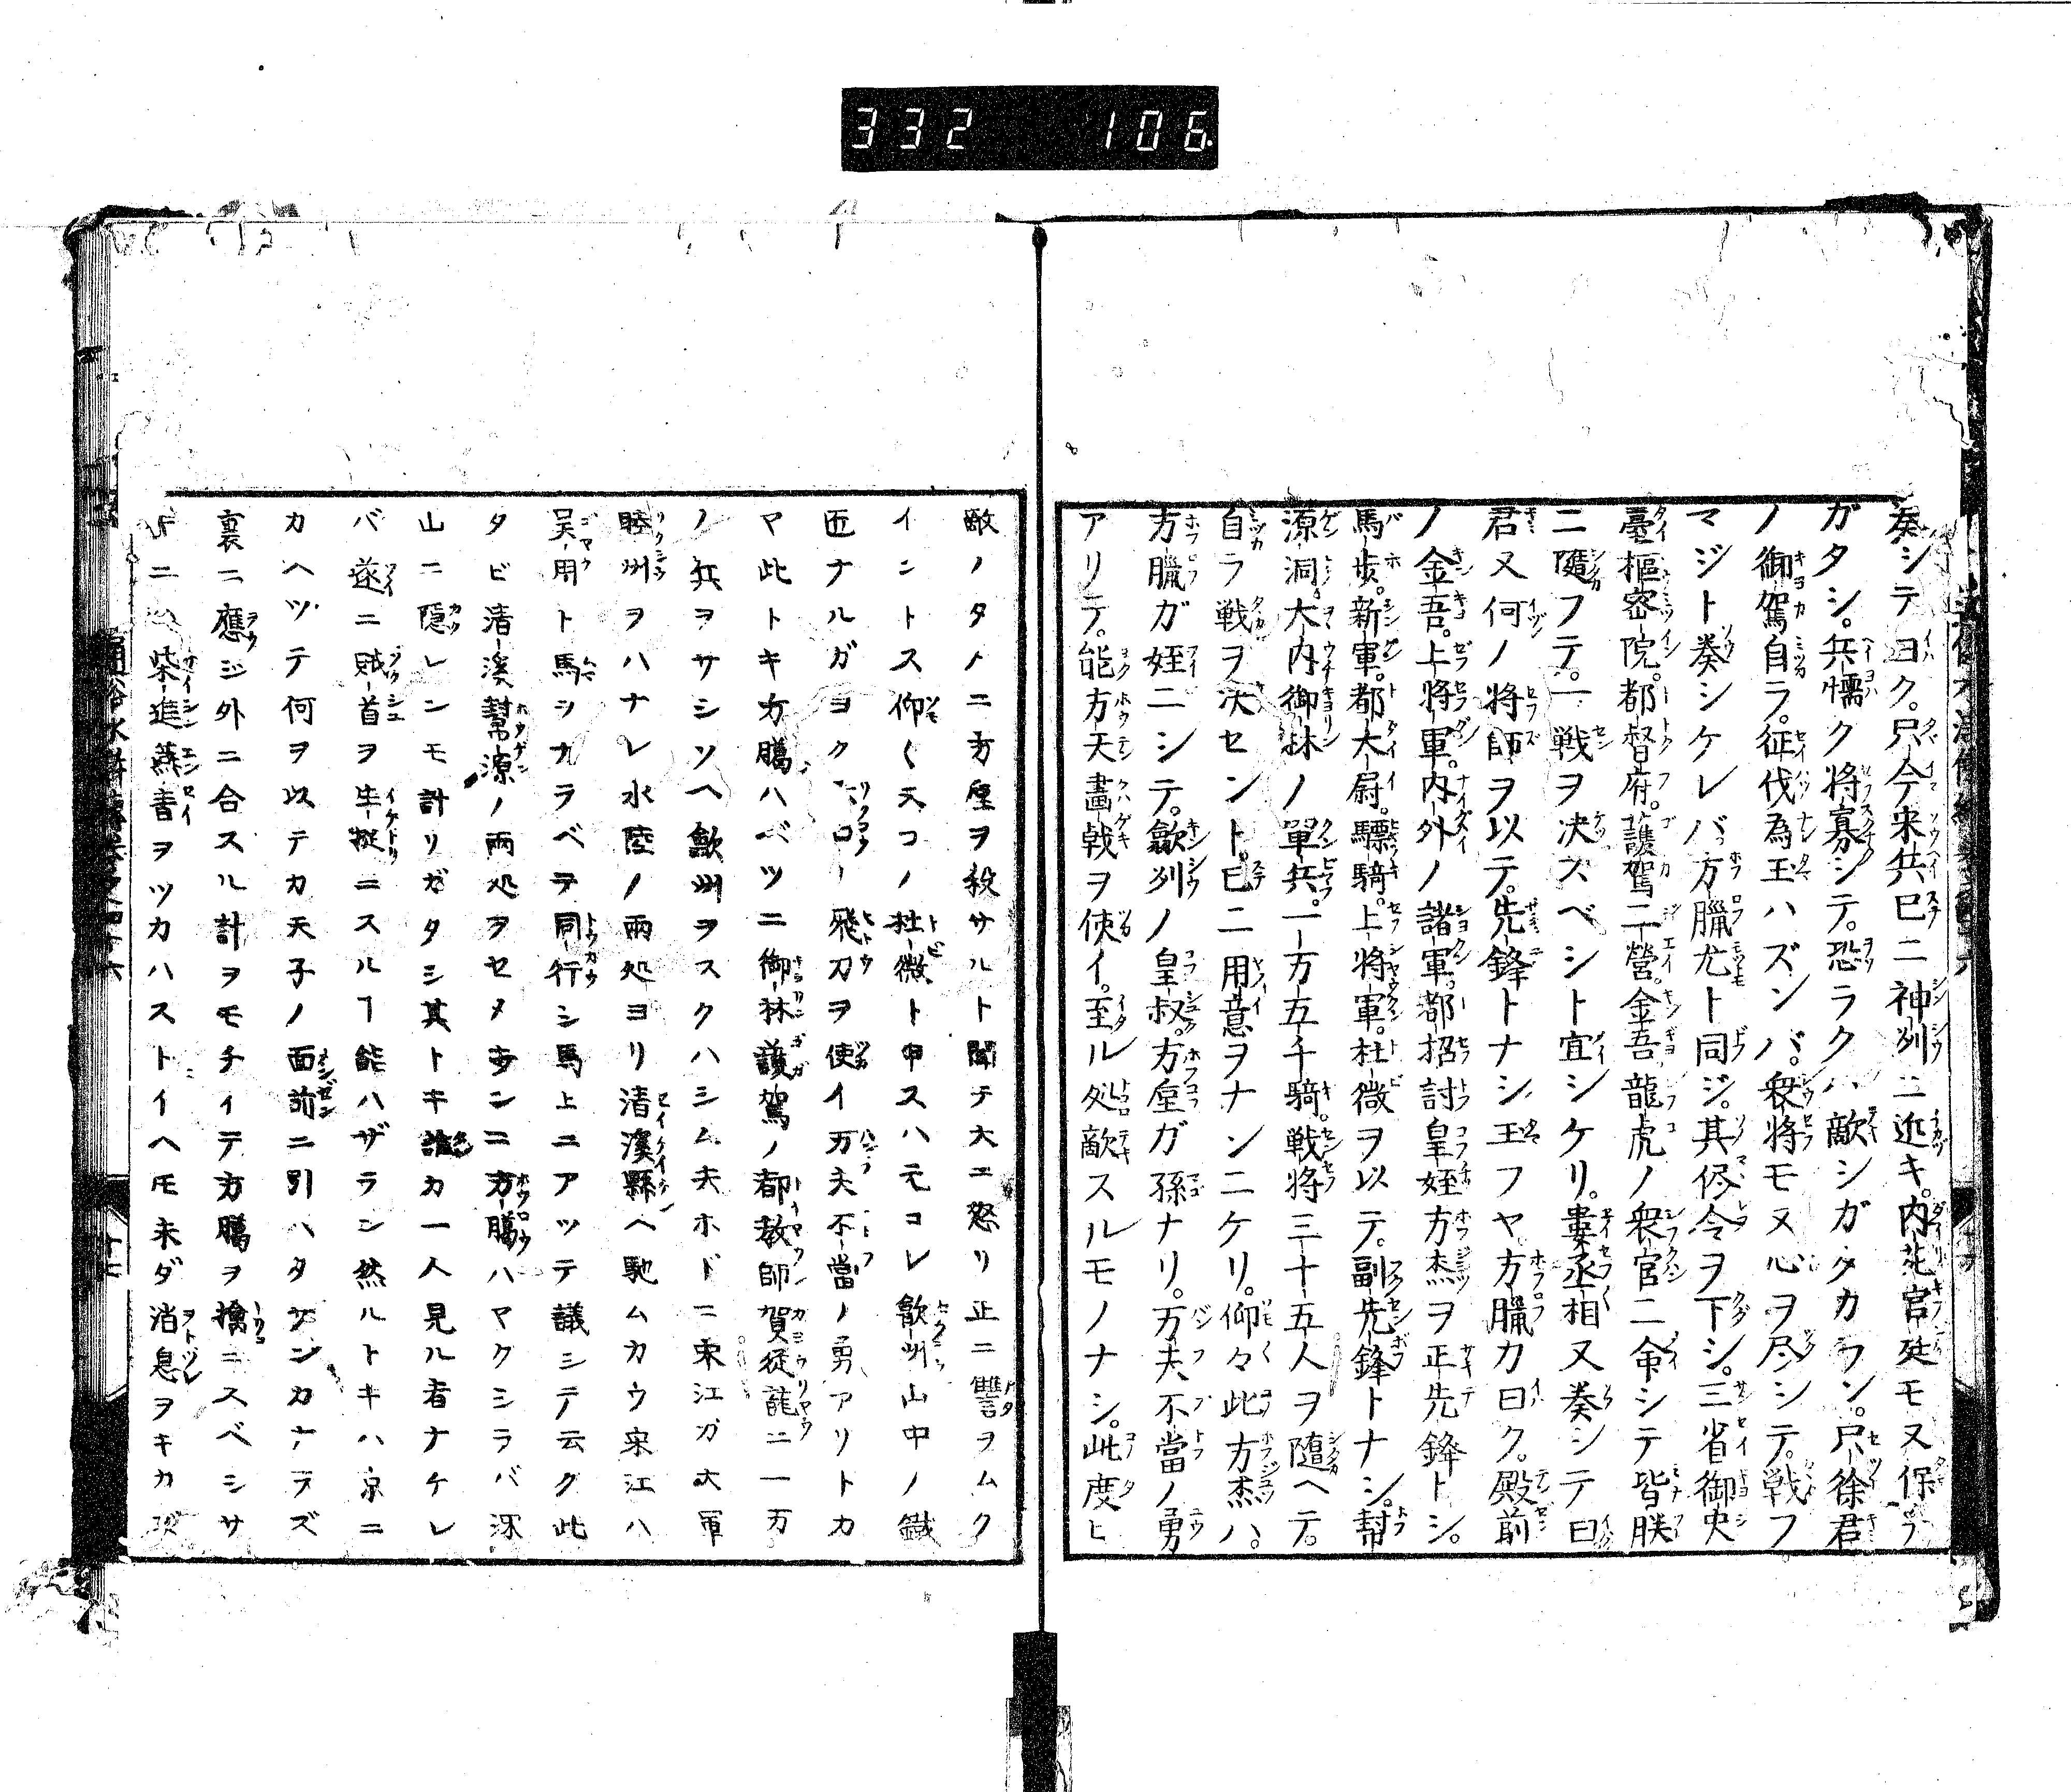 332 106
奏シテ曰ク。只今宋兵巳ニ神州ニ近キ。内苑宮廷モ又保ヲ
ガタシ。兵懦ク将寡シテ。恐ラクハ敵シガタカラン。只徐君
ノ御駕自ラ。征伐為玉ハズンバ。衆将モ又心ヲ尽シテ。戦フ
マジト奏シケレバ。方臘尤ト同ジ。其侭令ヲ下シ。三省御史
臺。枢密院。都督府。護駕二営。金吾龍虎ノ衆官ニ命シテ皆朕
ニ隨フテ。一戦ヲ决スベシト宣シケリ。婁丞相又奏シテ曰
君又何ノ将師ヲ以テ。先鋒トナシ玉フヤ。方臘カ曰ク。殿前
ノ金吾。上将軍。内外ノ諸軍。都招討皇姪方杰ヲ正先鋒トシ。
馬歩。新軍。都大尉。驃騎。上将軍。杜微ヲ以テ。副先鋒トナシ。幇
源洞。大内御林ノ軍兵。一万五千騎。戦将三十五人ヲ隨ヘテ。
自ラ戦ヲ决セント。已ニ用意ヲナンニケリ。仰々此方杰ハ。
方臘ガ姪ニシテ。歙州ノ皇叔。方垕ガ孫ナリ。万夫不當ノ勇
アリテ。能方天畫戟ヲ使イ。至ル処敵スルモノナシ。此度ヒ
敵ノタメニ方垕ヲ殺サルト聞テ大ニ怒リ正ニ讐ヲムク
イントス仰〱天コノ杜微ト申スハ元コレ歙州山中ノ鐡
匠ナルガヨク六口ノ飛刀ヲ使イ万夫不當ノ勇アリトカ
ヤ此トキ方臘ハベツニ御林護駕ノ都教師賀従龍ニ一万
ノ兵ヲサシソヘ歙州ヲスクハシム夫ホドニ宋江ガ大軍
睦州ヲハナレ水陸ノ兩処ヨリ清溪縣ヘ馳ムカウ宋江ハ
吴用ト馬ヲナラベテ同行シ馬上ニアツテ議シテ云ク此
タビ清溪幇源ノ兩処ヲセメ
山ニ隠レンモ計リガタシ其トキ誰カ一人見ル者ナケレ
バ遂ニ賊首ヲ生捉ニスルヿ能ハザラン然ルトキハ京ニ
カヘツテ何ヲ以テカ天子ノ面前ニ引ハタサンカナラズ
裏ニ應ジ外ニ合スル計ヲモチイテ方臘ヲ擒ニスベシサ
キニ柴進燕青ヲツカハストイヘモ未ダ消息ヲキカズ